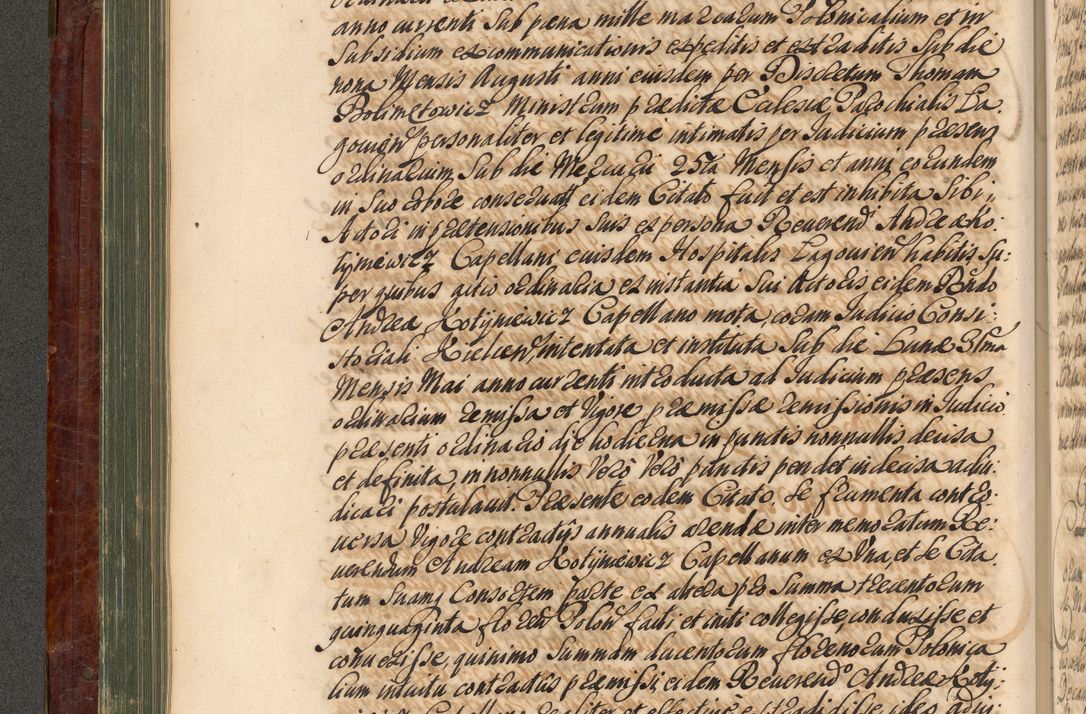 anno currenti sub pæna mille marcarum Polonicalium et in
subsidium excommunicationis expeditis et extraditis sub die
nona Mensis Augusti anni eiusdem per Discretum Thomam
Bolimetowicz Ministrum prædictæ Ecclesiæ Parochialis La
govien personaliter et legitime intimatis per Iudicium præsens
ordinarium sub die Mercurii 25ta Mensis et anni eorundem
in suo robore conservatt eidem Citato fuit et est inhibita sibi,,
Actori in prætensionibus suis ex persona Reverend Andreæ Ko:
tyniewicz Capellani eiusdem Hospitalis Lagovien habitis su:
per quibus actio ordinaria ex instantia sui Actoris eidem Rndo
Andreæ Kotyniewicz Capellano mota, coram Iudicio Consi:
storiali Kielcen, intentata et instituta sub die Lunæ 31ma
Mensis Mai anno currenti introducta ad Iudicium præsens
ordinarium remissa et Vigore præmissæ remissionis in Iudicio
præsenti ordinario die hodierna in punctis nonnullis decisa
et definita, in nonnullis Verò Verò punctis pendet indecisa adiu:
dicari postulavit. Præsente eodem Citato. Se frumenta contro:
versa Vigore contractûs annualis arendæ inter memoratum Re:
verendum Andream Kotyniewicz Capellanum ex Una, et se Cita
tum suamq Consortem parte ex altera pro summa trecentorum
quinquaginta floren Polon facti et initi collegisse, conduxisse et
convexisse, quinimo summam ducentorum florenorum Polonica
lium intuitu contractûs præmissi, eidem Reverendo Andreæ Koty: